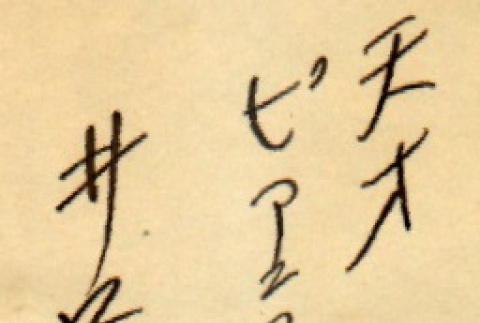 天才
ピアニ
井